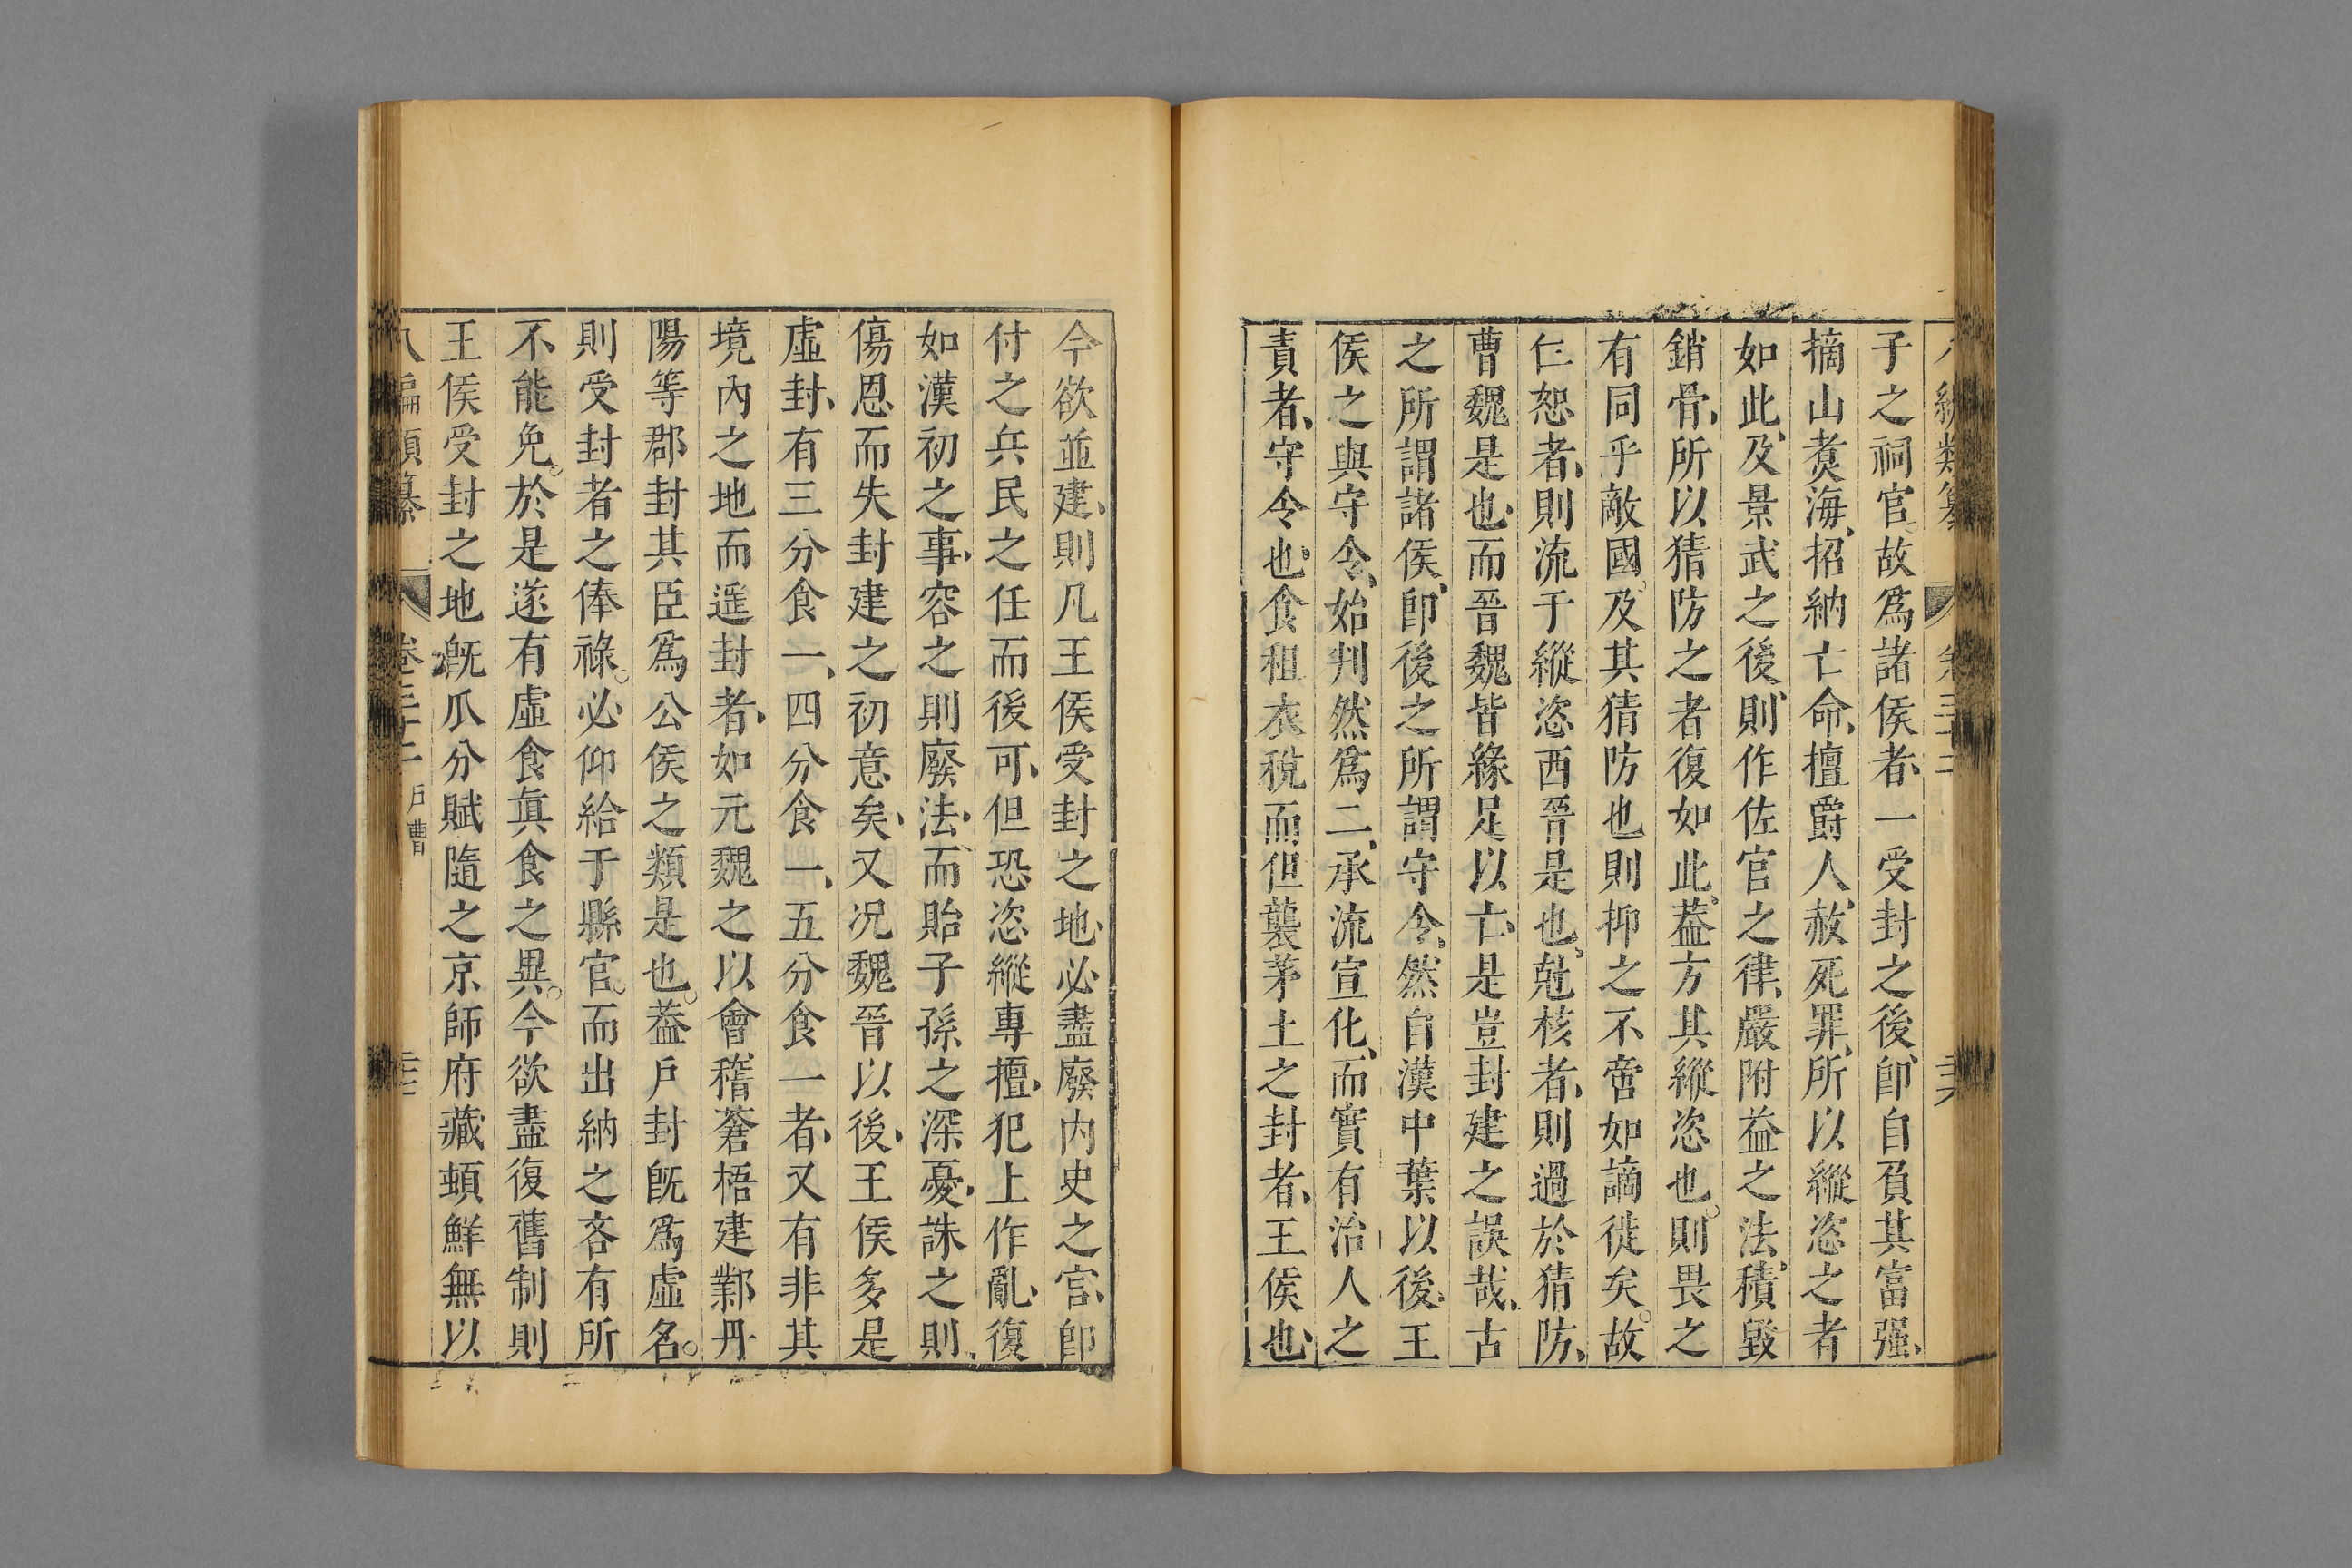 子之祠官故爲諸侯者一受封之後卽自負其富强
摘山煑海招納亡命擅爵人赦死罪所以縱恣之者
如此及景武之後則作佐官之律嚴附益之法積毀
銷骨所以猜防之者復如此葢方其縱恣也則畏之
有同乎敵國及其猜防也則抑之不啻如謫徙矣故
仁恕者則流于縱恣西晉是也尅核者則過於猜防
曹魏是也而晉魏皆緣足以亡是豈封建之誤哉古
之所謂諸侯卽後之所謂守令然自漢中葉以後王
侯之與守令始判然爲二承流宣化而實有治人之
責者守令也食租衣稅而但襲茅土之封者王侯也
今欲並建則凡王侯受封之地必盡廢內史之官卽
付之兵民之任而後可但恐恣縱專擅犯上作亂復
如漢初之事容之則廢法而貽子孫之深憂誅之則
傷恩而失封建之初意矣又况魏晉以後王侯多是
虛封有三分食一四分食一五分食一者又有非其
境內之地而遥封者如元魏之以會稽蒼梧建鄴丹
陽等郡封其臣爲公侯之類是也葢戶封旣爲虛名
則受封者之俸祿必仰給于縣官而出納之吝有所
不能免於是遂有虛食眞食之異今欲盡復舊制則
王侯受封之地旣瓜分賦隨之京師府藏頓鮮無以
八編類纂 卷三十二 戶曹